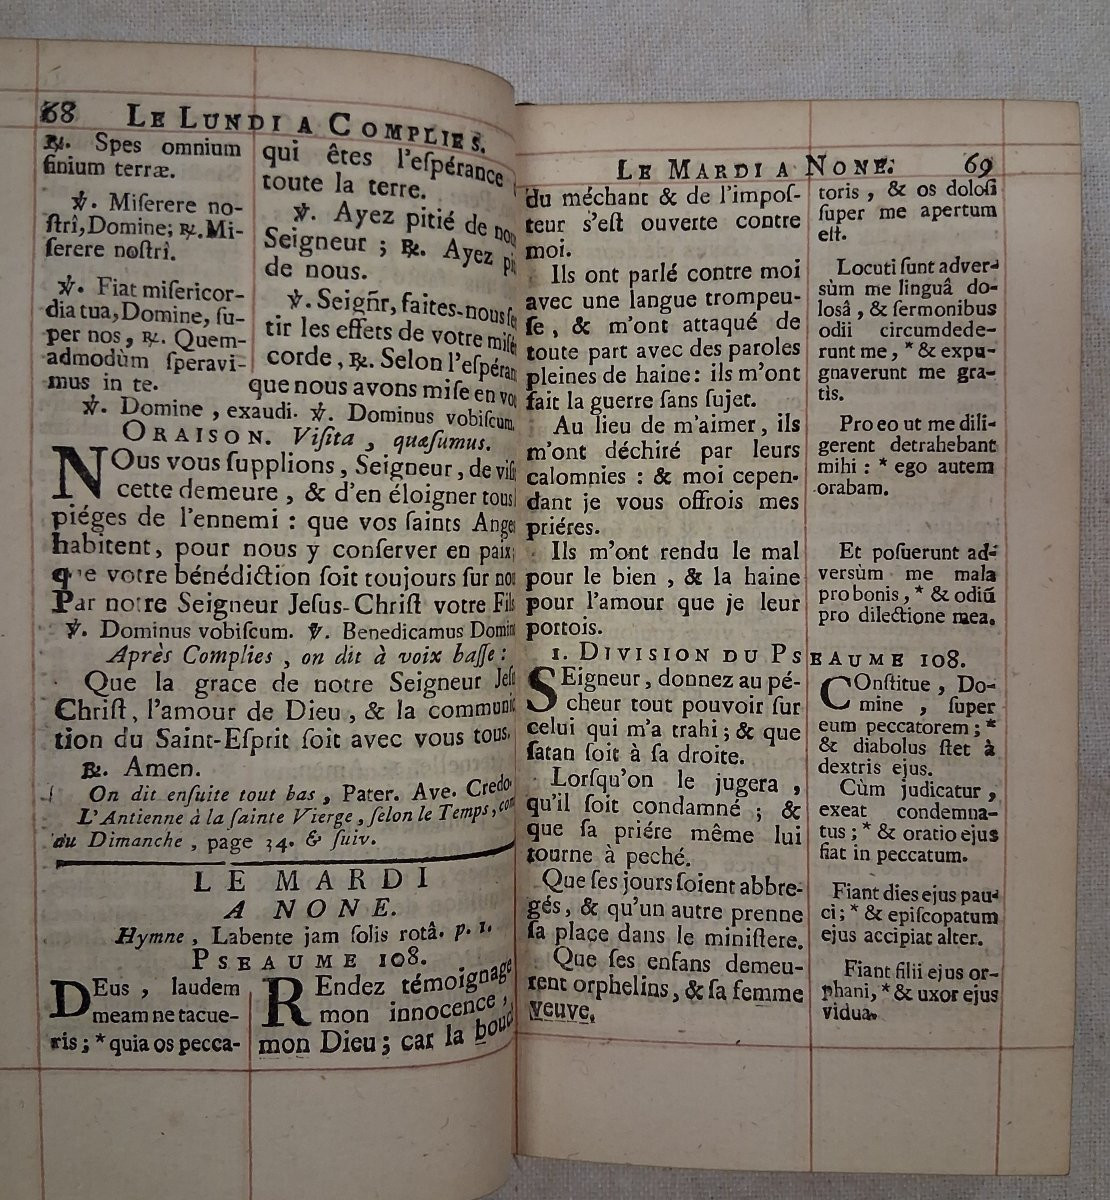 68 LE LUNDI A COMPLIES.
℟. Spes omnium
finium terræ.
℣. Miſerere no-
ſtrî, Domine; ℟. Mi-
ſerere noſtrî.
℣. Fiat miſericor-
dia tua, Domine, ſu-
per nos, ℟. Quem-
admodùm ſperavi-
mus in te.
qui êtes l'eſpérance
toute la terre.
℣. Ayez pitié de
Seigneur ; ℟. Ayez
de nous.
℣. Seigñr, faites-nous
tir les effets de votre
corde, ℟. Selon l'eſpéran
que nous avons miſe en
℣. Domine, exaudi. ℣. Dominus vobiſcum.
ORAISON. Viſita, quæſumus.
NOus vous ſupplions, Seigneur, de
cette demeure, & d'en éloigner tous
piéges de l'ennemi : que vos ſaints Ange
habitent, pour nous y conſerver en paix;
que votre bénédiction ſoit toujours ſur
Par notre Seigneur Jeſus-Chriſt votre Fils
℣. Dominus vobiſcum. ℣. Benedicamus Domin
Après Complies, on dit à voix baſſe :
Que la grace de notre Seigneur Jeſu
Chriſt, l'amour de Dieu, & la communi
tion du Saint-Eſprit ſoit avec vous tous.
℟. Amen.
On dit enſuite tout bas, Pater. Ave. Credo
L'Antienne à la ſainte Vierge, ſelon le Temps,
au Dimanche, page 34. & ſuiv.
LE MARDI
A NONE.
Hymne, Labente jam ſolis rotâ. p. 1.
PSEAUME 108.
DEus, laudem
meam ne tacue-
ris ; * quia os pecca-
REndez témoignage
mon innocence,
mon Dieu ; car la
LE MARDI A NONE. 69
du méchant & de l'impoſ-
teur s'eſt ouverte contre
moi.
Ils ont parlé contre moi
avec une langue trompeu-
ſe, & m'ont attaqué de
toute part avec des paroles
pleines de haine : ils m'ont
fait la guerre ſans ſujet.
Au lieu de m'aimer, ils
m'ont déchiré par leurs
calomnies : & moi cepen-
dant je vous offrois mes
priéres.
Ils m'ont rendu le mal
pour le bien, & la haine
pour l'amour que je leur
portois.
toris, & os doloſi
ſuper me apertum
eſt.
Locuti ſunt adver-
sùm me linguâ do-
losâ, & ſermonibus
odii circumdede-
runt me, * & expu-
gnaverunt me gra-
tis.
Pro eo ut me dili-
gerent detrahebant
mihi : * ego autem
orabam.
Et poſuerunt ad-
versùm me mala
pro bonis, * & odiū
pro dilectione mea.
1. DIVISION DU PSEAUME 108.
SEigneur, donnez au pé-
cheur tout pouvoir ſur
celui qui m'a trahi ; & que
ſatan ſoit à ſa droite.
Lorſqu'on le jugera,
qu'il ſoit condamné ; &
que ſa priére même lui
tourne à peché.
Que ſes jours ſoient abbre-
gés, & qu'un autre prenne
ſa place dans le miniſtere.
Que ſes enfans demeu-
rent orphelins, & ſa femme
veuve.
COnſtitue, Do-
mine, ſuper
eum peccatorem ; *
& diabolus ſtet à
dextris ejus.
Cùm judicatur,
exeat condemna-
tus ; * & oratio ejus
fiat in peccatum.
Fiant dies ejus pau-
ci ; * & epiſcopatum
ejus accipiat alter.
Fiant filii ejus or-
phani, * & uxor ejus
vidua.